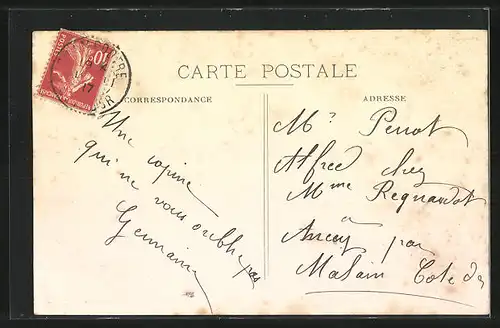 CARTE POSTALE
CORRESPONDANCE
ADRESSE
10
Une copine
qui ne
vous oublie pas
Germaine
Mr Perrot
Alfred chez
Mme Regnardot
à
Ancey par
Malain Cote d'